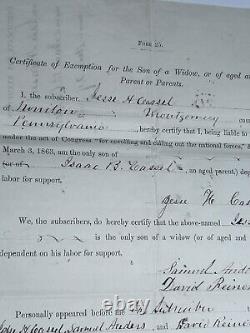 FORM 25.
Certificate of Exemption for the Son of a Widow, or of aged and
Parent or Parents.
I, the subscriber, Jesse H Cassel
of Worcester Montgomery
Pennsylvania, hereby certify that I, being liable to
under the act of Congress "for enrolling and calling out the national forces," &
March 3, 1863, am the only son of
Isaac B. Cassel, an aged parent, dep
labor for support.
Jesse H. Cas
We, the subscribers, do hereby certify that the above-named
is the only son of a (widow or of) aged and
dependent on his labor for support.
Samuel Ande
David Reiner
Personally appeared before me
Samuel Anders, and David Reine